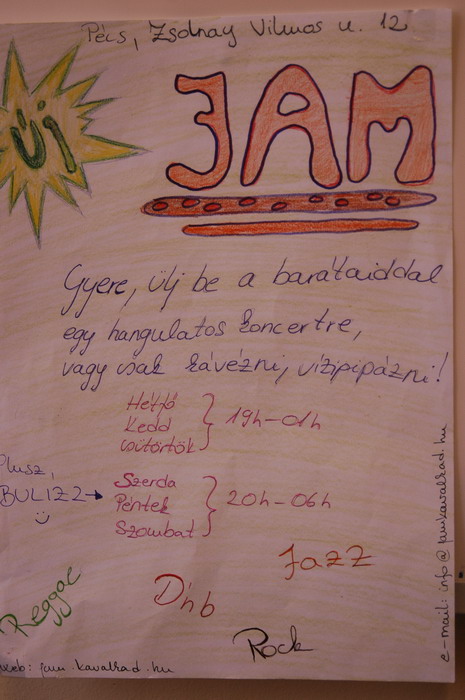 Pécs, Zsolnay Vilmos u. 12
Új
JAM
Gyere, ülj be a barátaiddal
egy hangulatos koncertre,
vagy csak kávézni, vízipipázni!
Hétfő
Kedd
csütörtök
19h-01h
Plusz,
BULIZZ
Szerda
Péntek
Szombat
20h-06h
Jazz
Reggae
Dnb
Rock
web: jam.kavalkad.hu
e-mail: info@jamkavalkad.hu